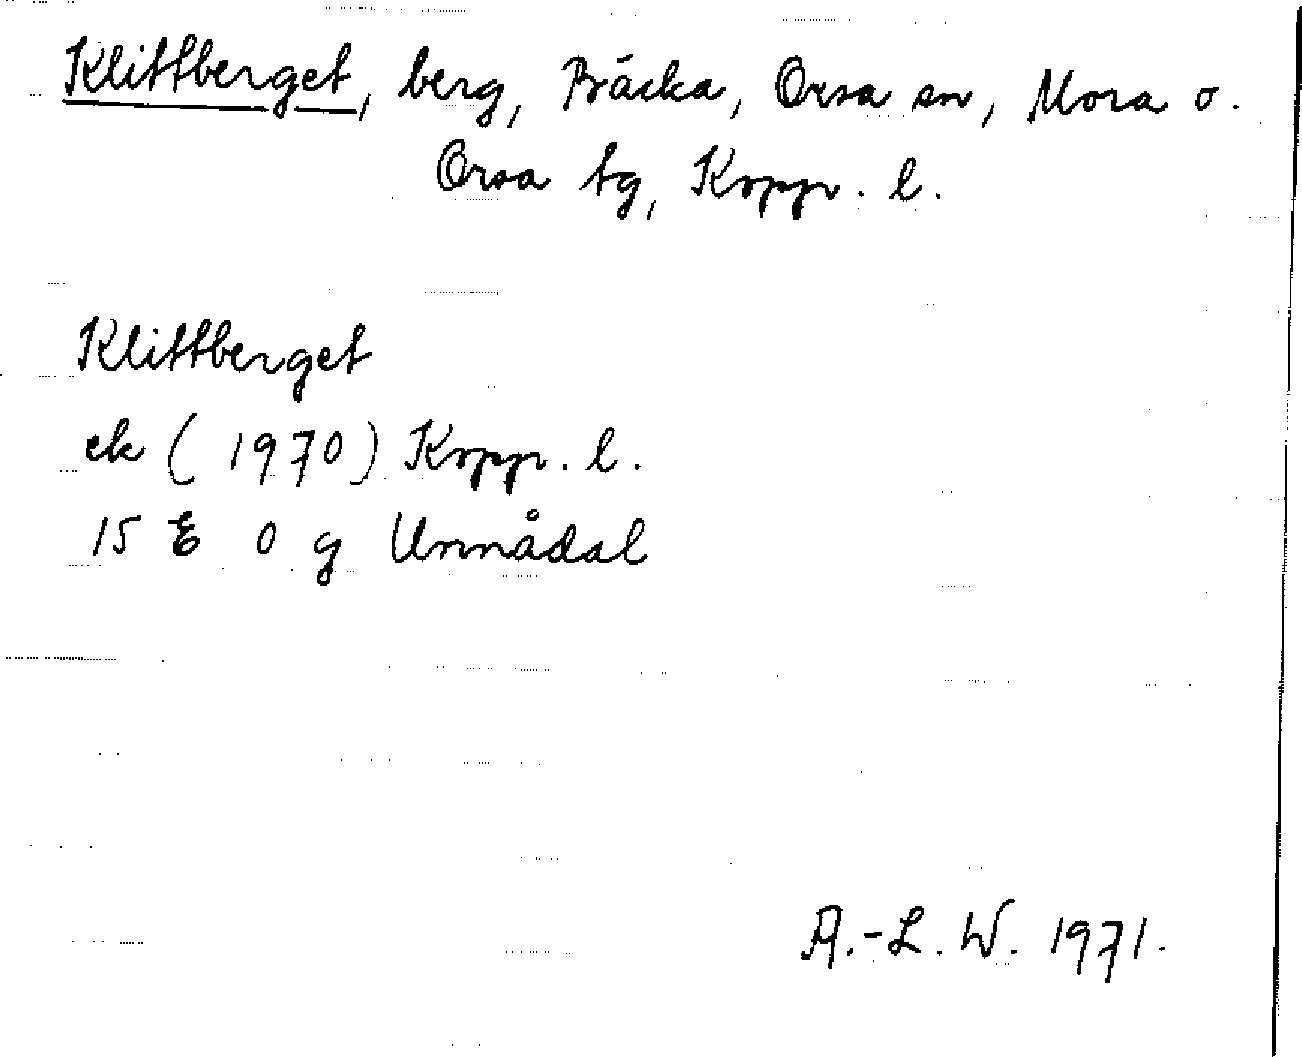 Klittberget, berg, Bäcka, Orsa sn, Mora o.
Orsa tg, Kopp. l.
Klittberget
ek (1970) Kopp. l.
15 E 0 g Unnådal
A.-L. W. 1971.